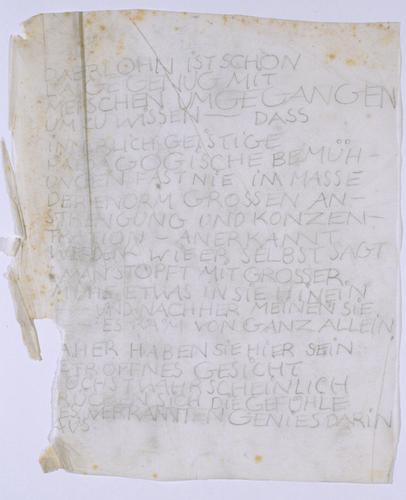 DAERLOHN IST SCHON
LANGE GENUG MIT
MENSCHEN UMGEGANGEN
UM ZU WISSEN — DASS
INNERLICH GEISTIGE
GOGISCHE BEMÜH -
UNGEN FAST NIE IM MASSE
DER ENORM GROSSEN AN-
STRENGUNG UND KONZEN-
TRATION - ANERKANNT
WERDEN. WIE ER SELBST SAGT
MAN STOPFT MIT GROSSER
MÜHE ETWAS IN SIE HINEIN
UND NACHHER MEINEN SIE
ES KAM VON GANZ ALLEIN
AHER HABEN SIE HIER SEIN
ETROFFNES GESICHT
ÖCHSTWAHRSCHEINLICH
DRÜCKEN SICH DIE GEFÜHLE
ES VERKANNTEN GENIES DARIN
AUS